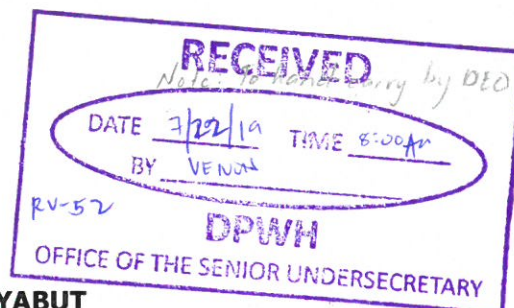 RECEIVED
Note: To hand carry by DEO
DATE 7/22/19 TIME 8:00AM
BY VENON
RV-52
DPWH
OFFICE OF THE SENIOR UNDERSECRETARY
YABUT